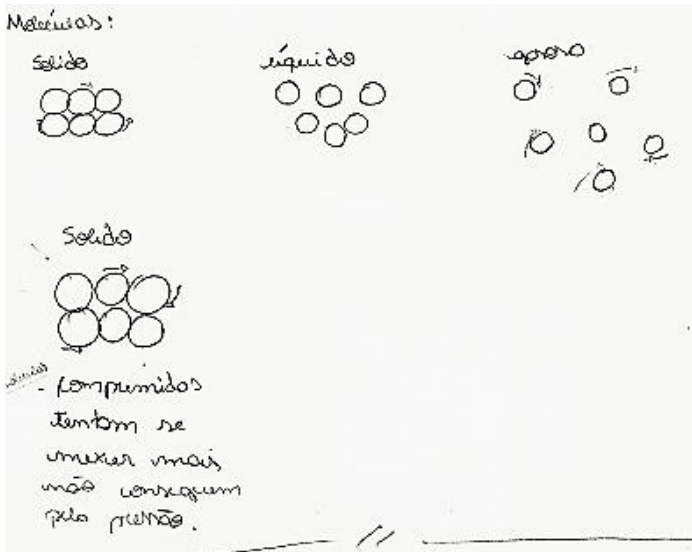 Moléculas:
Solido
Líquido
gasoso
Solido
- Comprimidos
tentam se
mexer mais
não conseguem
pela pressão.